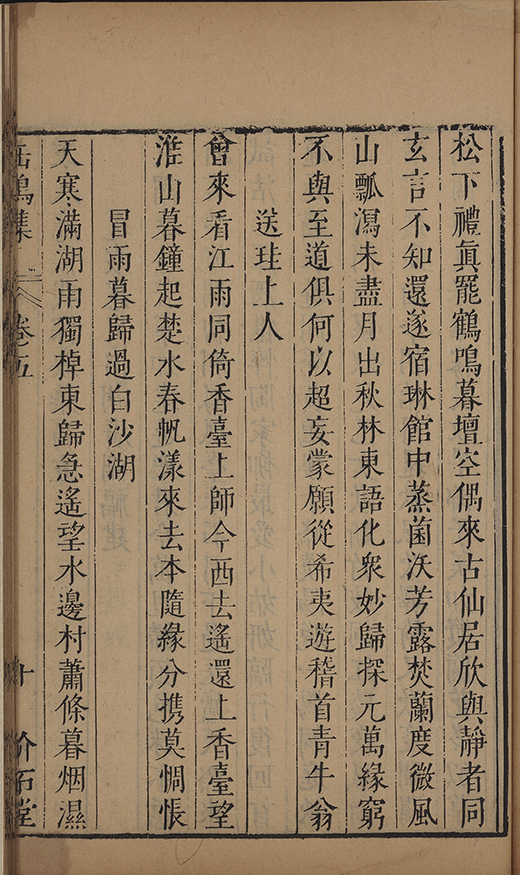 松下禮真罷鶴鳴暮壇空偶來古仙居欣與靜者同
玄言不知還遂宿琳館中蒸菌沃芳露焚蘭度微風
山瓢瀉未盡月出秋林東語化衆妙歸探元萬緣窮
不與至道俱何以超妄蒙願從希夷遊稽首青牛翁
送珪上人
曾來看江雨同倚香臺上師今西去遙還上香臺望
淮山暮鐘起楚水春帆漾來去本隨緣分攜莫惆悵
冒雨暮歸過白沙湖
天寒滿湖雨獨棹東歸急遙望水邊村蕭條暮烟濕
缶鳴集
卷五
十